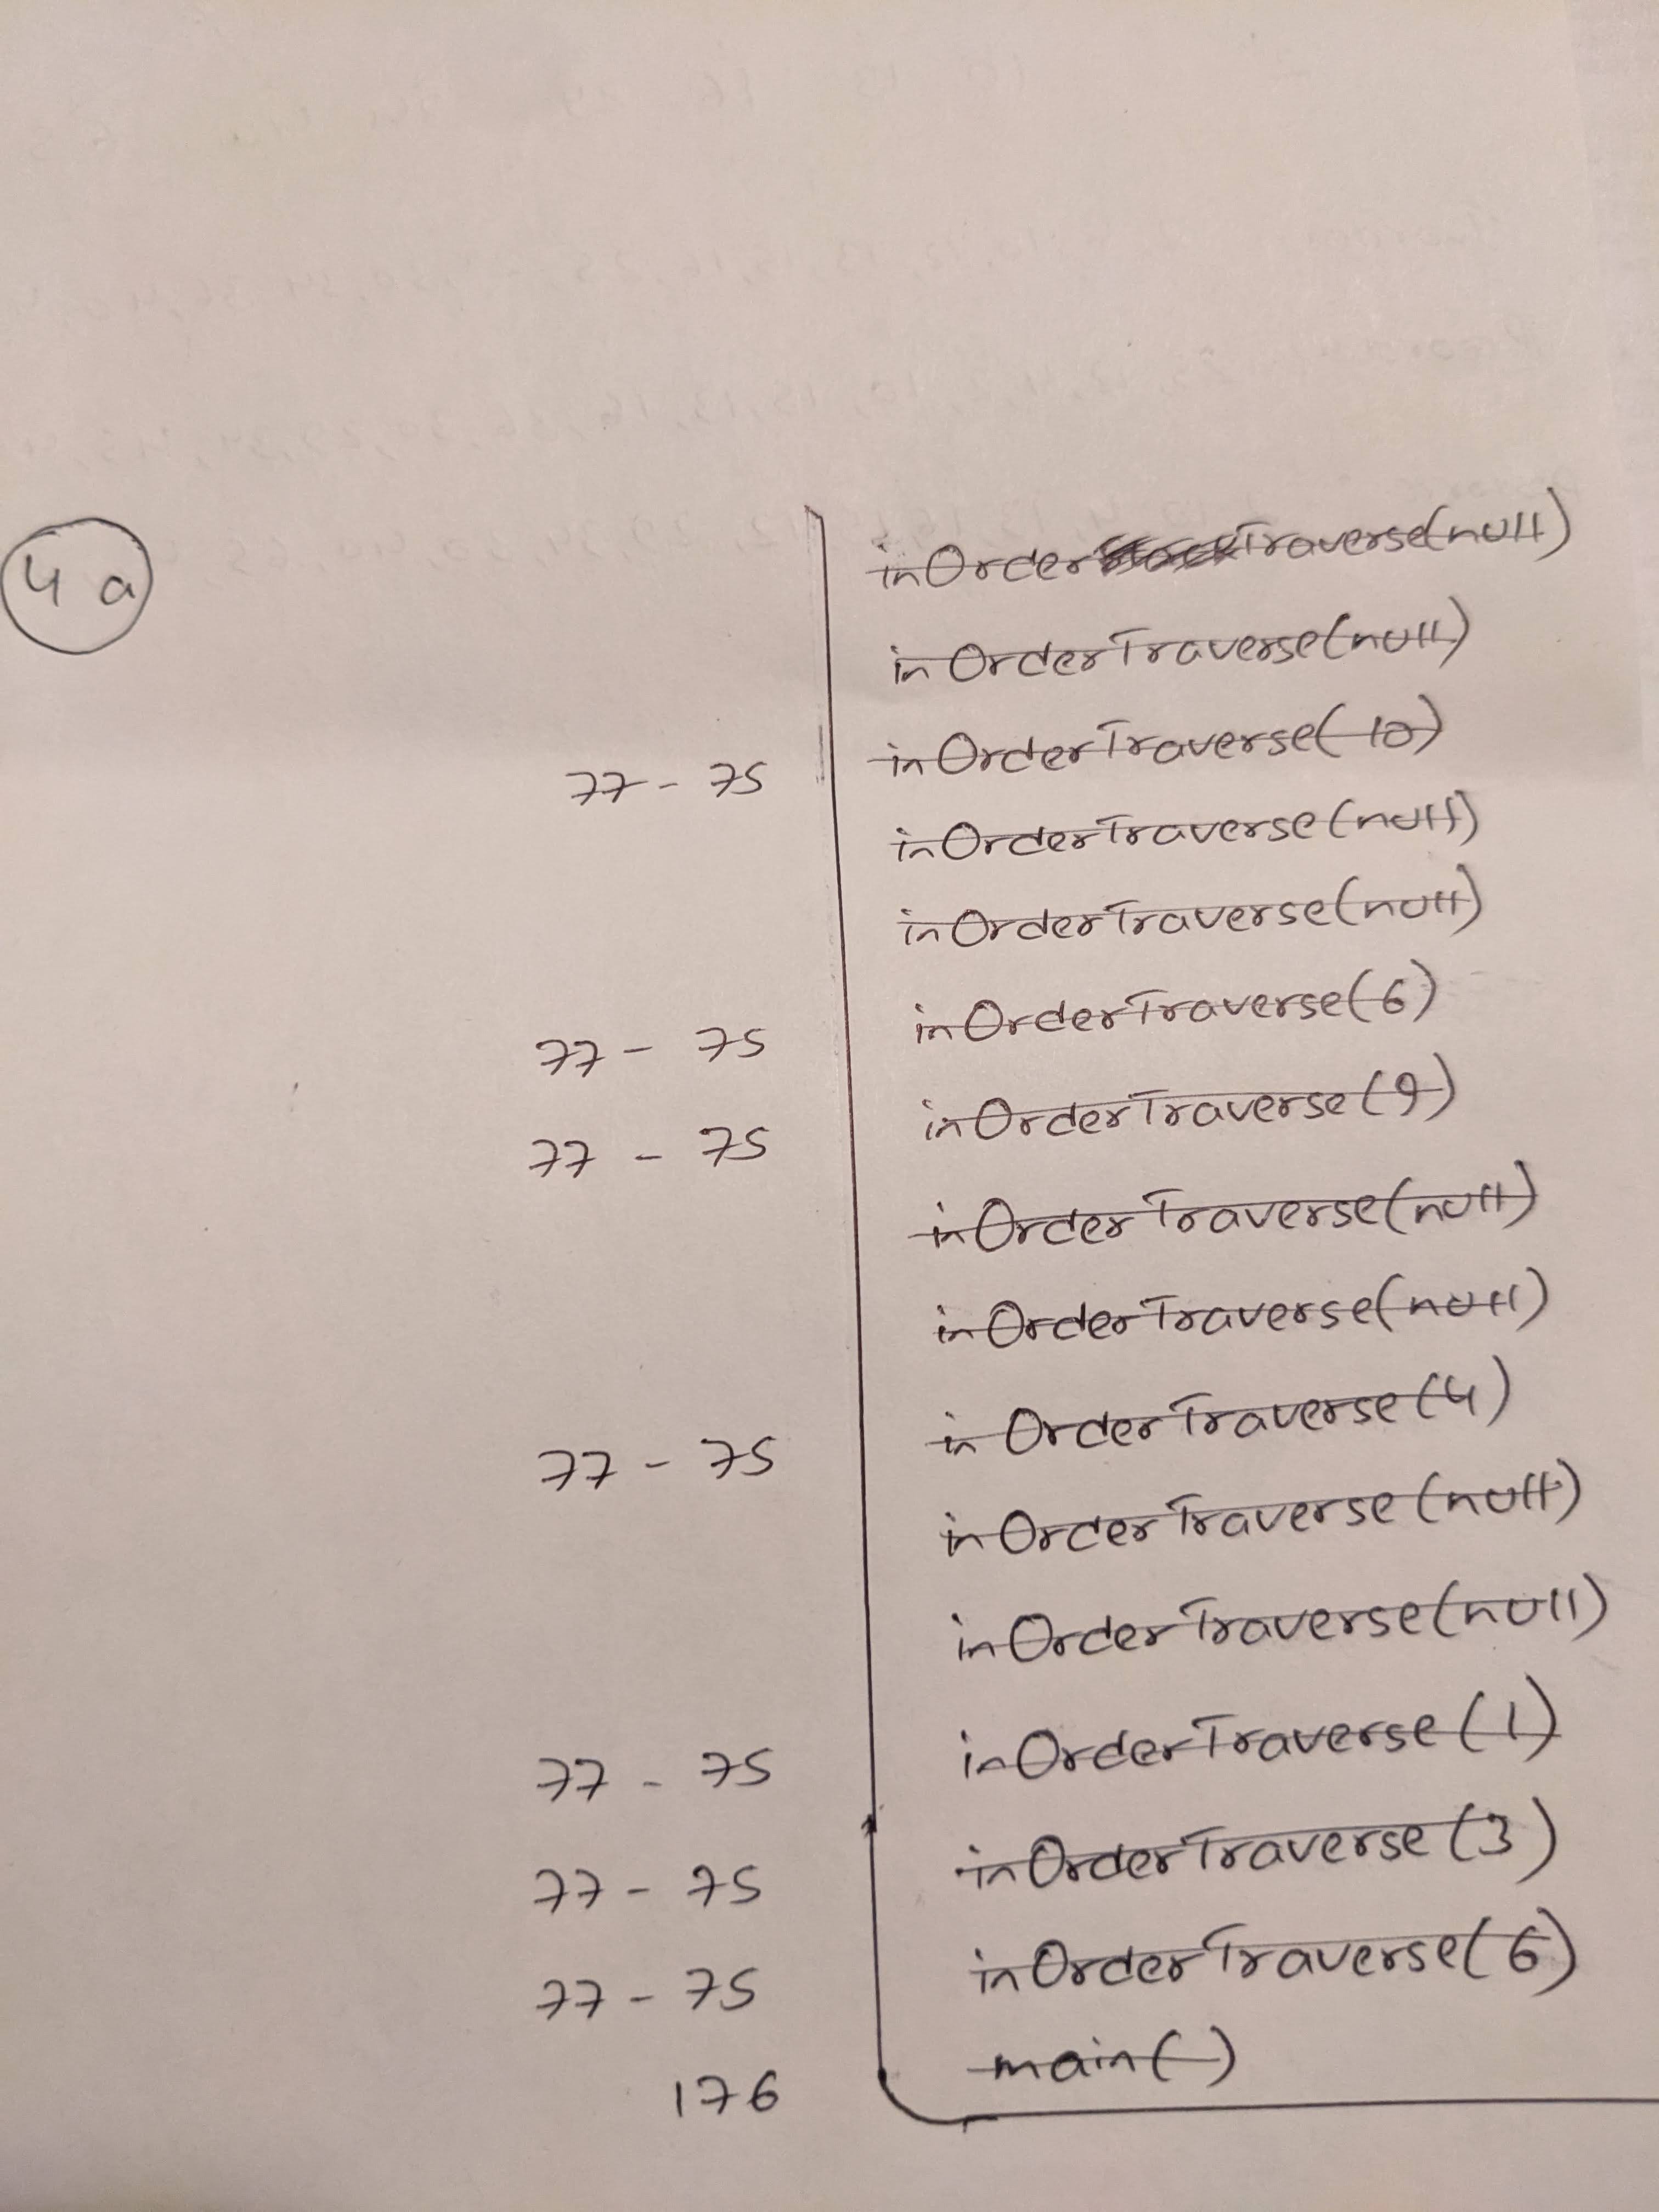 4 a
inOrderTraverse(null)
inOrderTraverse(null)
77 - 75 inOrderTraverse(10)
inOrderTraverse(null)
inOrderTraverse(null)
77 - 75 inOrderTraverse(6)
77 - 75 inOrderTraverse(9)
inOrderTraverse(null)
inOrderTraverse(null)
77 - 75 inOrderTraverse(4)
inOrderTraverse(null)
inOrderTraverse(null)
77 - 75 inOrderTraverse(1)
77 - 75 inOrderTraverse(3)
77 - 75 inOrderTraverse(6)
176 main()